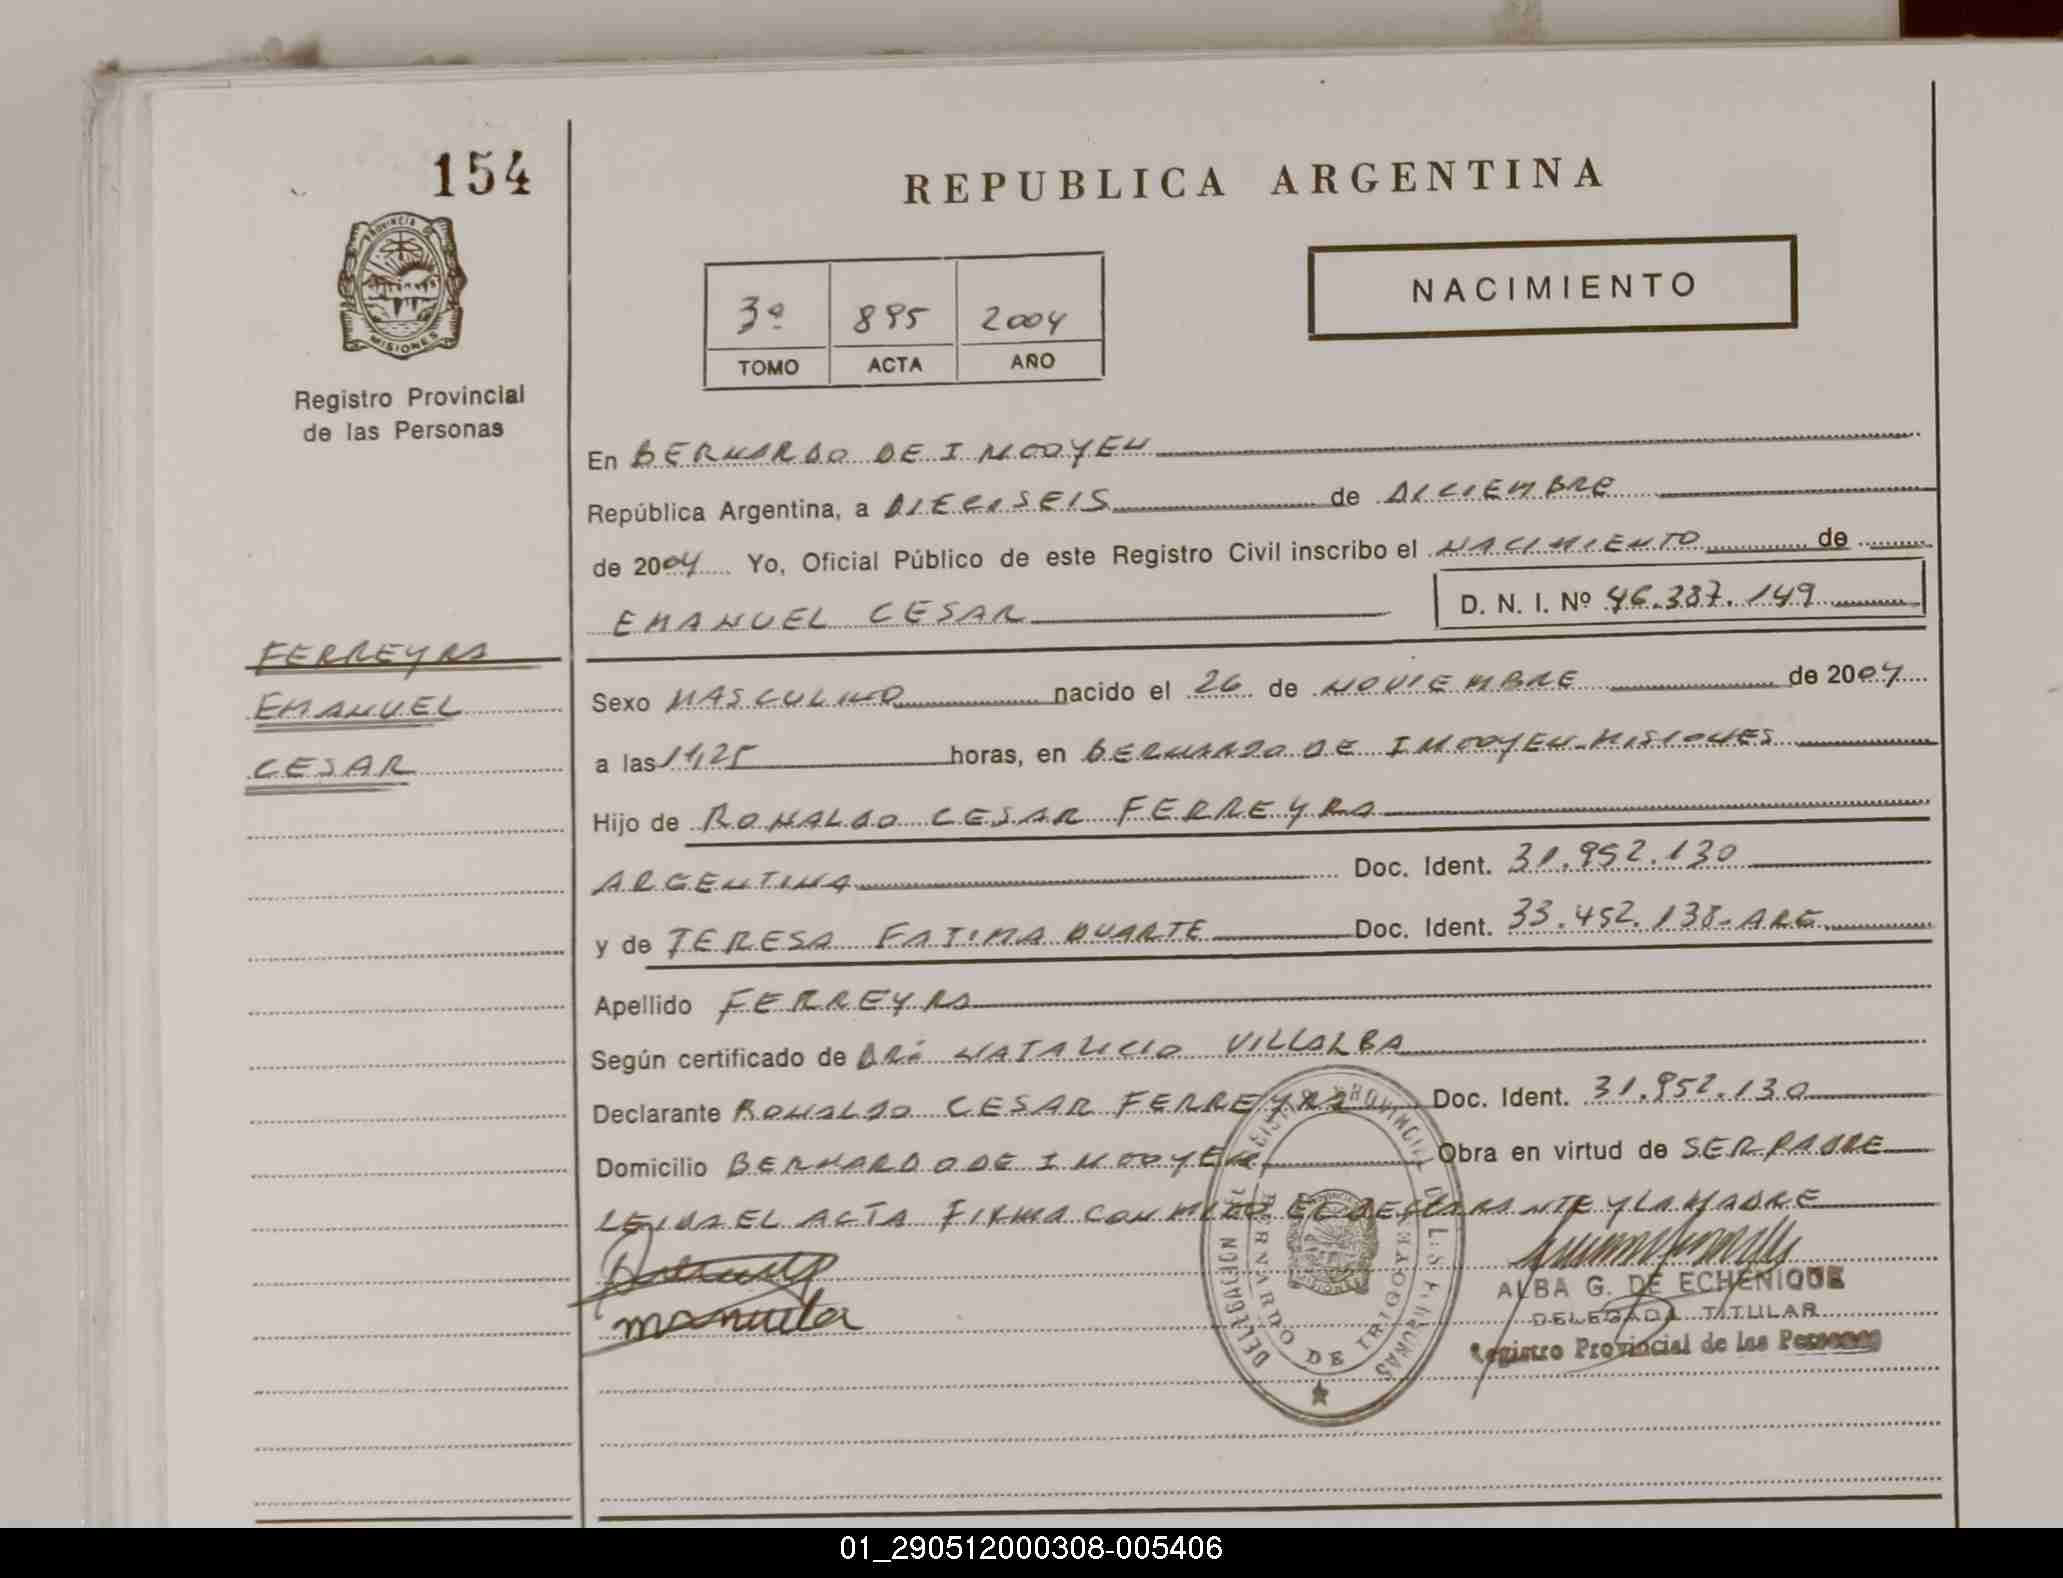 154
REPUBLICA ARGENTINA
PROVINCIA DE
MISIONES
Registro Provincial
de las Personas
NACIMIENTO
3º 895 2004
TOMO ACTA AÑO
En BERNARDO DE IRIGOYEN
República Argentina, a DIECISEIS de DICIEMBRE
de 2004 Yo, Oficial Público de este Registro Civil inscribo el NACIMIENTO de
EMANUEL CESAR D. N. I. Nº 46.387.149
FERREYRA
EMANUEL
CESAR
Sexo MASCULINO nacido el 26 de NOVIEMBRE de 2004
a las 11,25 horas, en BERNARDO DE IRIGOYEN-MISIONES
Hijo de RONALDO CESAR FERREYRA
ARGENTINA Doc. Ident. 31.952.130
y de TERESA FATIMA DUARTE Doc. Ident. 33.452.138-ARG
Apellido FERREYRA
Según certificado de DR: NATALICIO VILLALBA
Declarante RONALDO CESAR FERREYRA Doc. Ident. 31.952.130
Domicilio BERNARDO DE IRIGOYEN Obra en virtud de SER PADRE
LEIDA EL ACTA FIRMA CONMIGO EL DECLARANTE Y LA MADRE
BERNARDO DE IRIGOYEN
ALBA G. DE ECHENIQUE
DELEGADA TITULAR
Registro Provincial de las Personas
01_290512000308-005406